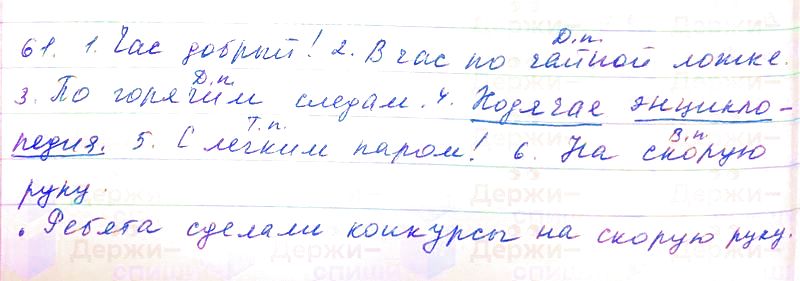 61. 1. Час добрый! 2. В час по чайной ложке.
Д.п.
3. По горячим следам. 4. Ходячая энцикло-
Д.п.
педия. 5. С легким паром! 6. На скорую
Т.п. В.п.
руку.
• Ребята сделали конкурсы на скорую руку.
Держи-
спиши